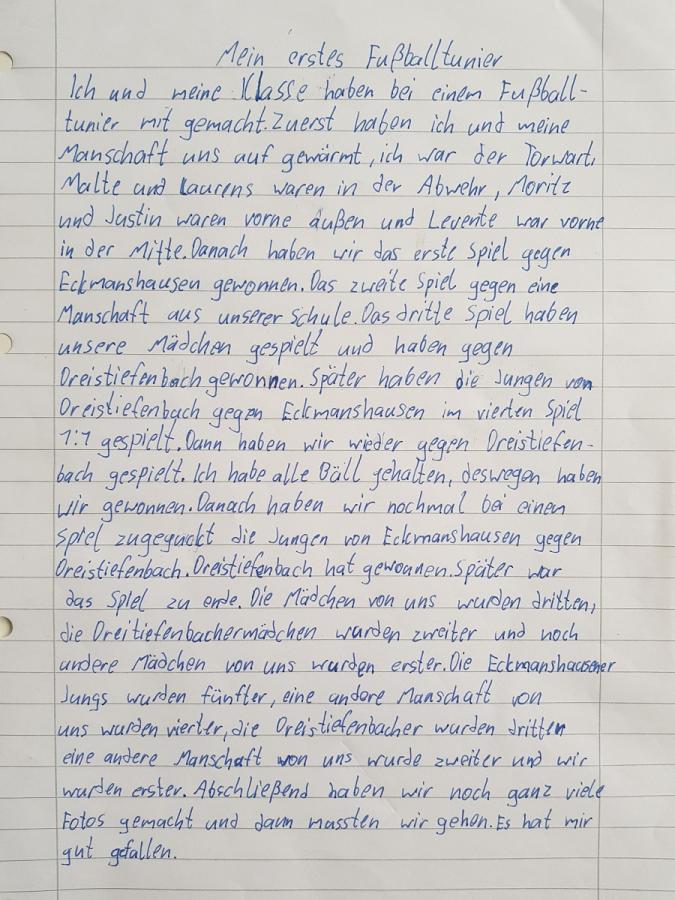 Mein erstes Fußballtunier
Ich und meine Klasse haben bei einem Fußball-
tunier mit gemacht. Zuerst haben ich und meine
Manschaft uns auf gewärmt, ich war der Torwart,
Malte und Laurens waren in der Abwehr, Moritz
und Justin waren vorne außen und Levente war vorne
in der Mitte. Danach haben wir das erste Spiel gegen
Eckmanshausen gewonnen. Das zweite Spiel gegen eine
Manschaft aus unserer Schule. Das dritte Spiel haben
unsere Mädchen gespielt und haben gegen
Dreistiefenbach gewonnen. Später haben die Jungen von
Dreistiefenbach gegen Eckmanshausen im vierten Spiel
1:1 gespielt. Dann haben wir wieder gegen Dreistiefen-
bach gespielt. Ich habe alle Bäll gehalten, deswegen haben
wir gewonnen. Danach haben wir nochmal bei einem
Spiel zugeguckt die Jungen von Eckmanshausen gegen
Dreistiefenbach. Dreistiefenbach hat gewonnen. Später war
das Spiel zu ende. Die Mädchen von uns wurden dritten,
die Dreitiefenbachermädchen wurden zweiter und noch
andere Mädchen von uns wurden erster. Die Eckmanshausener
Jungs wurden fünfter, eine andere Manschaft von
uns wurden vierter, die Dreistiefenbacher wurden dritten
eine andere Manschaft von uns wurde zweiter und wir
wurden erster. Abschließend haben wir noch ganz viele
Fotos gemacht und dann mussten wir gehen. Es hat mir
gut gefallen.